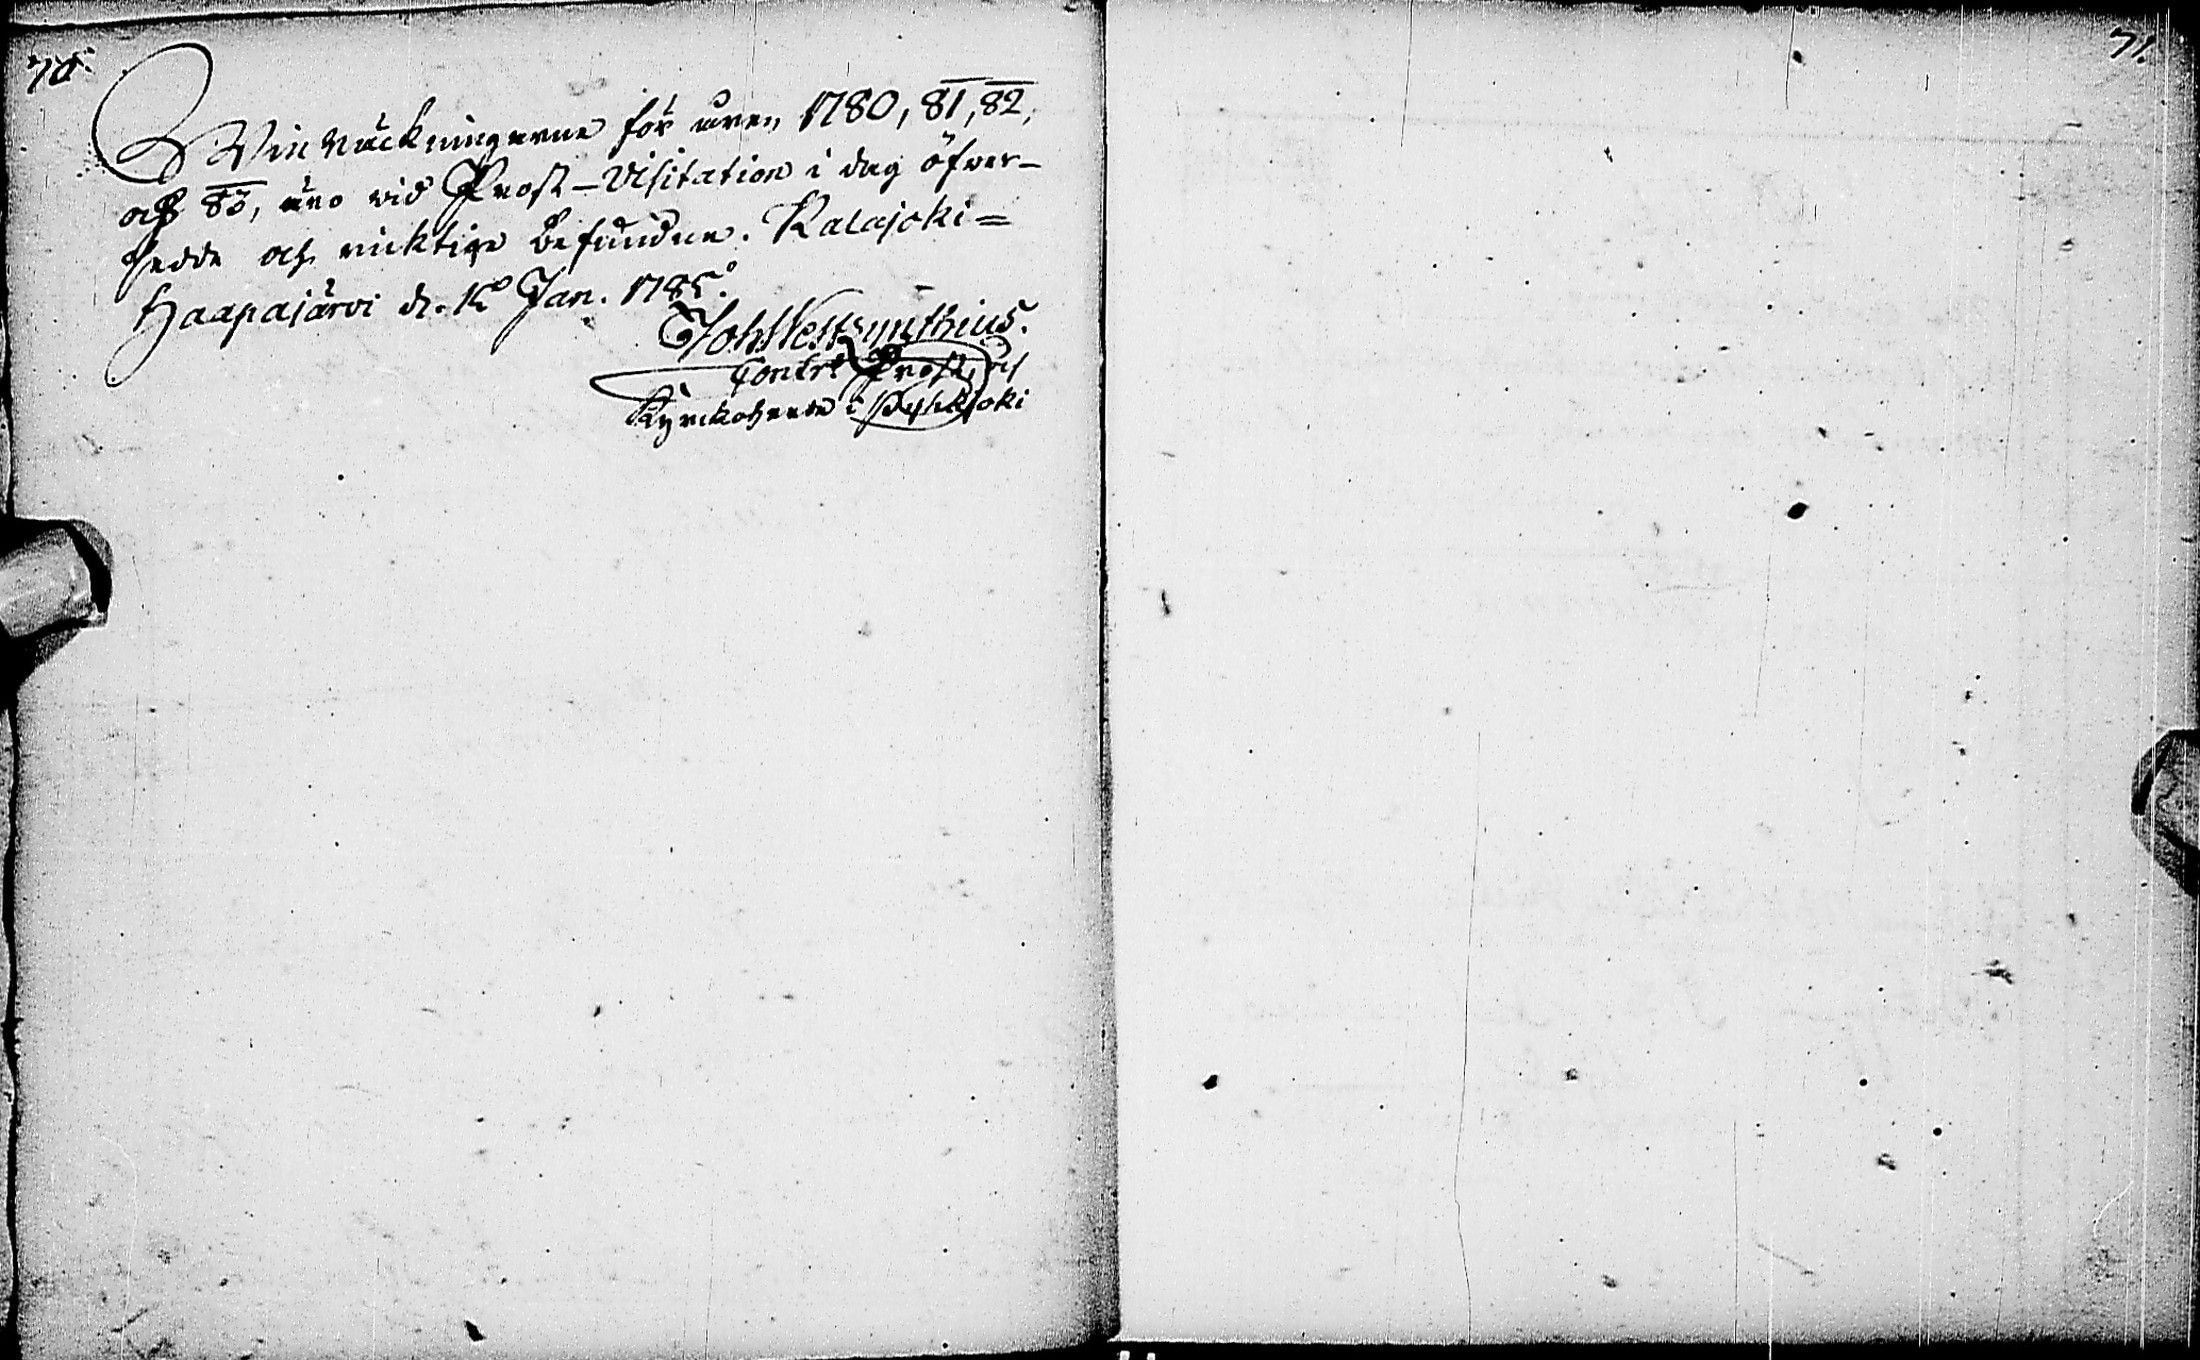 70.
71.
Vin Räckningarne för åren 1780, 81, 82,
och 83, äro vid Prost-Visitation i dag öfver-
sedde och richtige befundne. Kalajoki=
Haapajärvi d. Jan. 1785.
Joh Westzynthius.
Contrt Prost, och
Kyrckoherde i Pyhäjoki